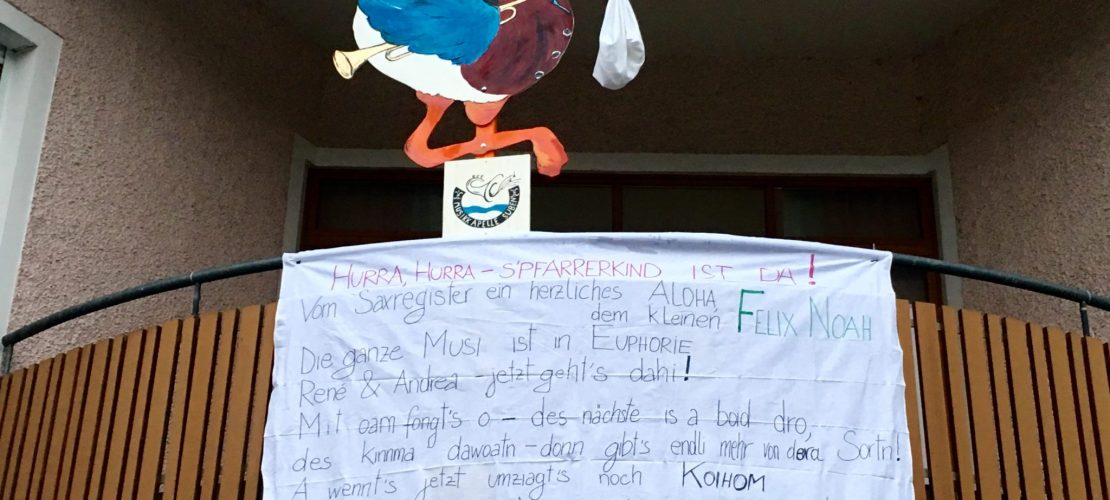 MUSIKKAPELLE SUBEN
HURRA, HURRA - S'PFARRERKIND IST DA!
Vom Saxregister ein herzliches ALOHA,
dem kleinen FELIX NOAH
Die ganze MUSI ist in EUPHORIE
René & Andrea - jetzt geht's dahi!
Mit oam fongt's o - des nächste is a boid dro,
des kinnma dawoatn - donn gibt's endli mehr von dera Sortn!
A wennt's jetzt umziagt's noch KOIHOM